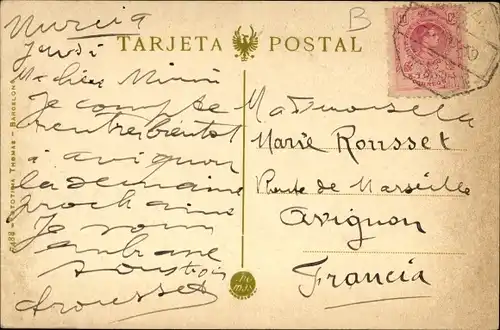 Murcia
Jeudi
B
TARJETA POSTAL
Ma chère Mimi
Je compte
rentrer bientôt
à avignon
la semaine
prochaine
Je vous
embrasse
Arousset
Mademoiselle
Marie Rousset
Route de Marseille
Avignon
Francia
FOTOTIPIA THOMAS - BARCELONA